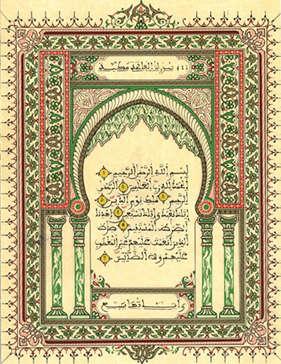 سورة الفاتحة مكية
بسم الله الرحمن الرحيم
الحمد لله رب العلمين الرحمن
الرحيم ملك يوم الدين
إياك نعبد وإياك نستعين اهدنا
الصرط المستقيم صرط
الذين أنعمت عليهم غير المغضوب
عليهم ولا الضالين
وآياتها سبع